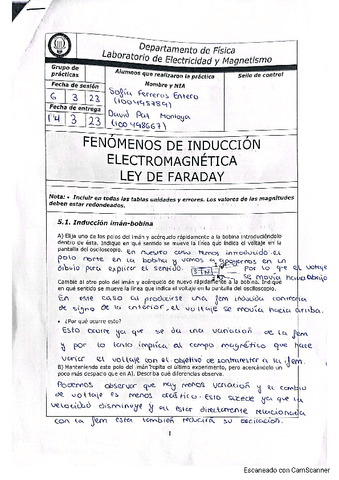 Departamento de Física
Laboratorio de Electricidad y Magnetismo
Grupo de prácticas
Alumnos que realizaron la práctica
Sello de control
Fecha de sesión
Nombre y NIA
6 3 23
Sofía Ferreros Entero
(100495789)
Fecha de entrega
14 3 23
David Pat Montoya
(100498667)
FENÓMENOS DE INDUCCIÓN
ELECTROMAGNÉTICA
LEY DE FARADAY
Nota: • Incluir en todas las tablas unidades y errores. Los valores de las magnitudes
deben estar redondeados.
5.1. Inducción imán-bobina
A) Elija uno de los polos del imán y acérquelo rápidamente a la bobina introduciéndolo
dentro de ésta. Indique en qué sentido se mueve la línea que indica el voltaje en la
pantalla del osciloscopio. En nuestro caso hemos introducido el
polo norte en la bobina y vamos a apoyarnos en un
dibujo para explicar el sentido. S N Por lo que el voltaje
se movía hacia abajo
Cambie al otro polo del imán y acérquelo de nuevo rápidamente a la bobina. Indique
en qué sentido se mueve la línea que indica el voltaje en la pantalla del osciloscopio.
En este caso al producirse una fem inducida contraria
de signo de la anterior, el voltaje se movía hacia arriba.
• ¿Por qué ocurre esto?
Esto ocurre ya que se da una variación de la fem
y por lo tanto implica al campo magnético que hace
variar el voltaje con el objetivo de contrarrestar a la fem.
B) Manteniendo este polo del imán repita el último experimento, pero acercándolo un
poco más despacio que en A). Describa qué diferencias observa.
Podemos observar que hay menos variación y el cambio
de voltaje es menos drástico. Esto sucede ya que la
velocidad disminuye y al estar directamente relacionada
con la fem esta también reducirá su oscilación.
1
Escaneado con CamScanner